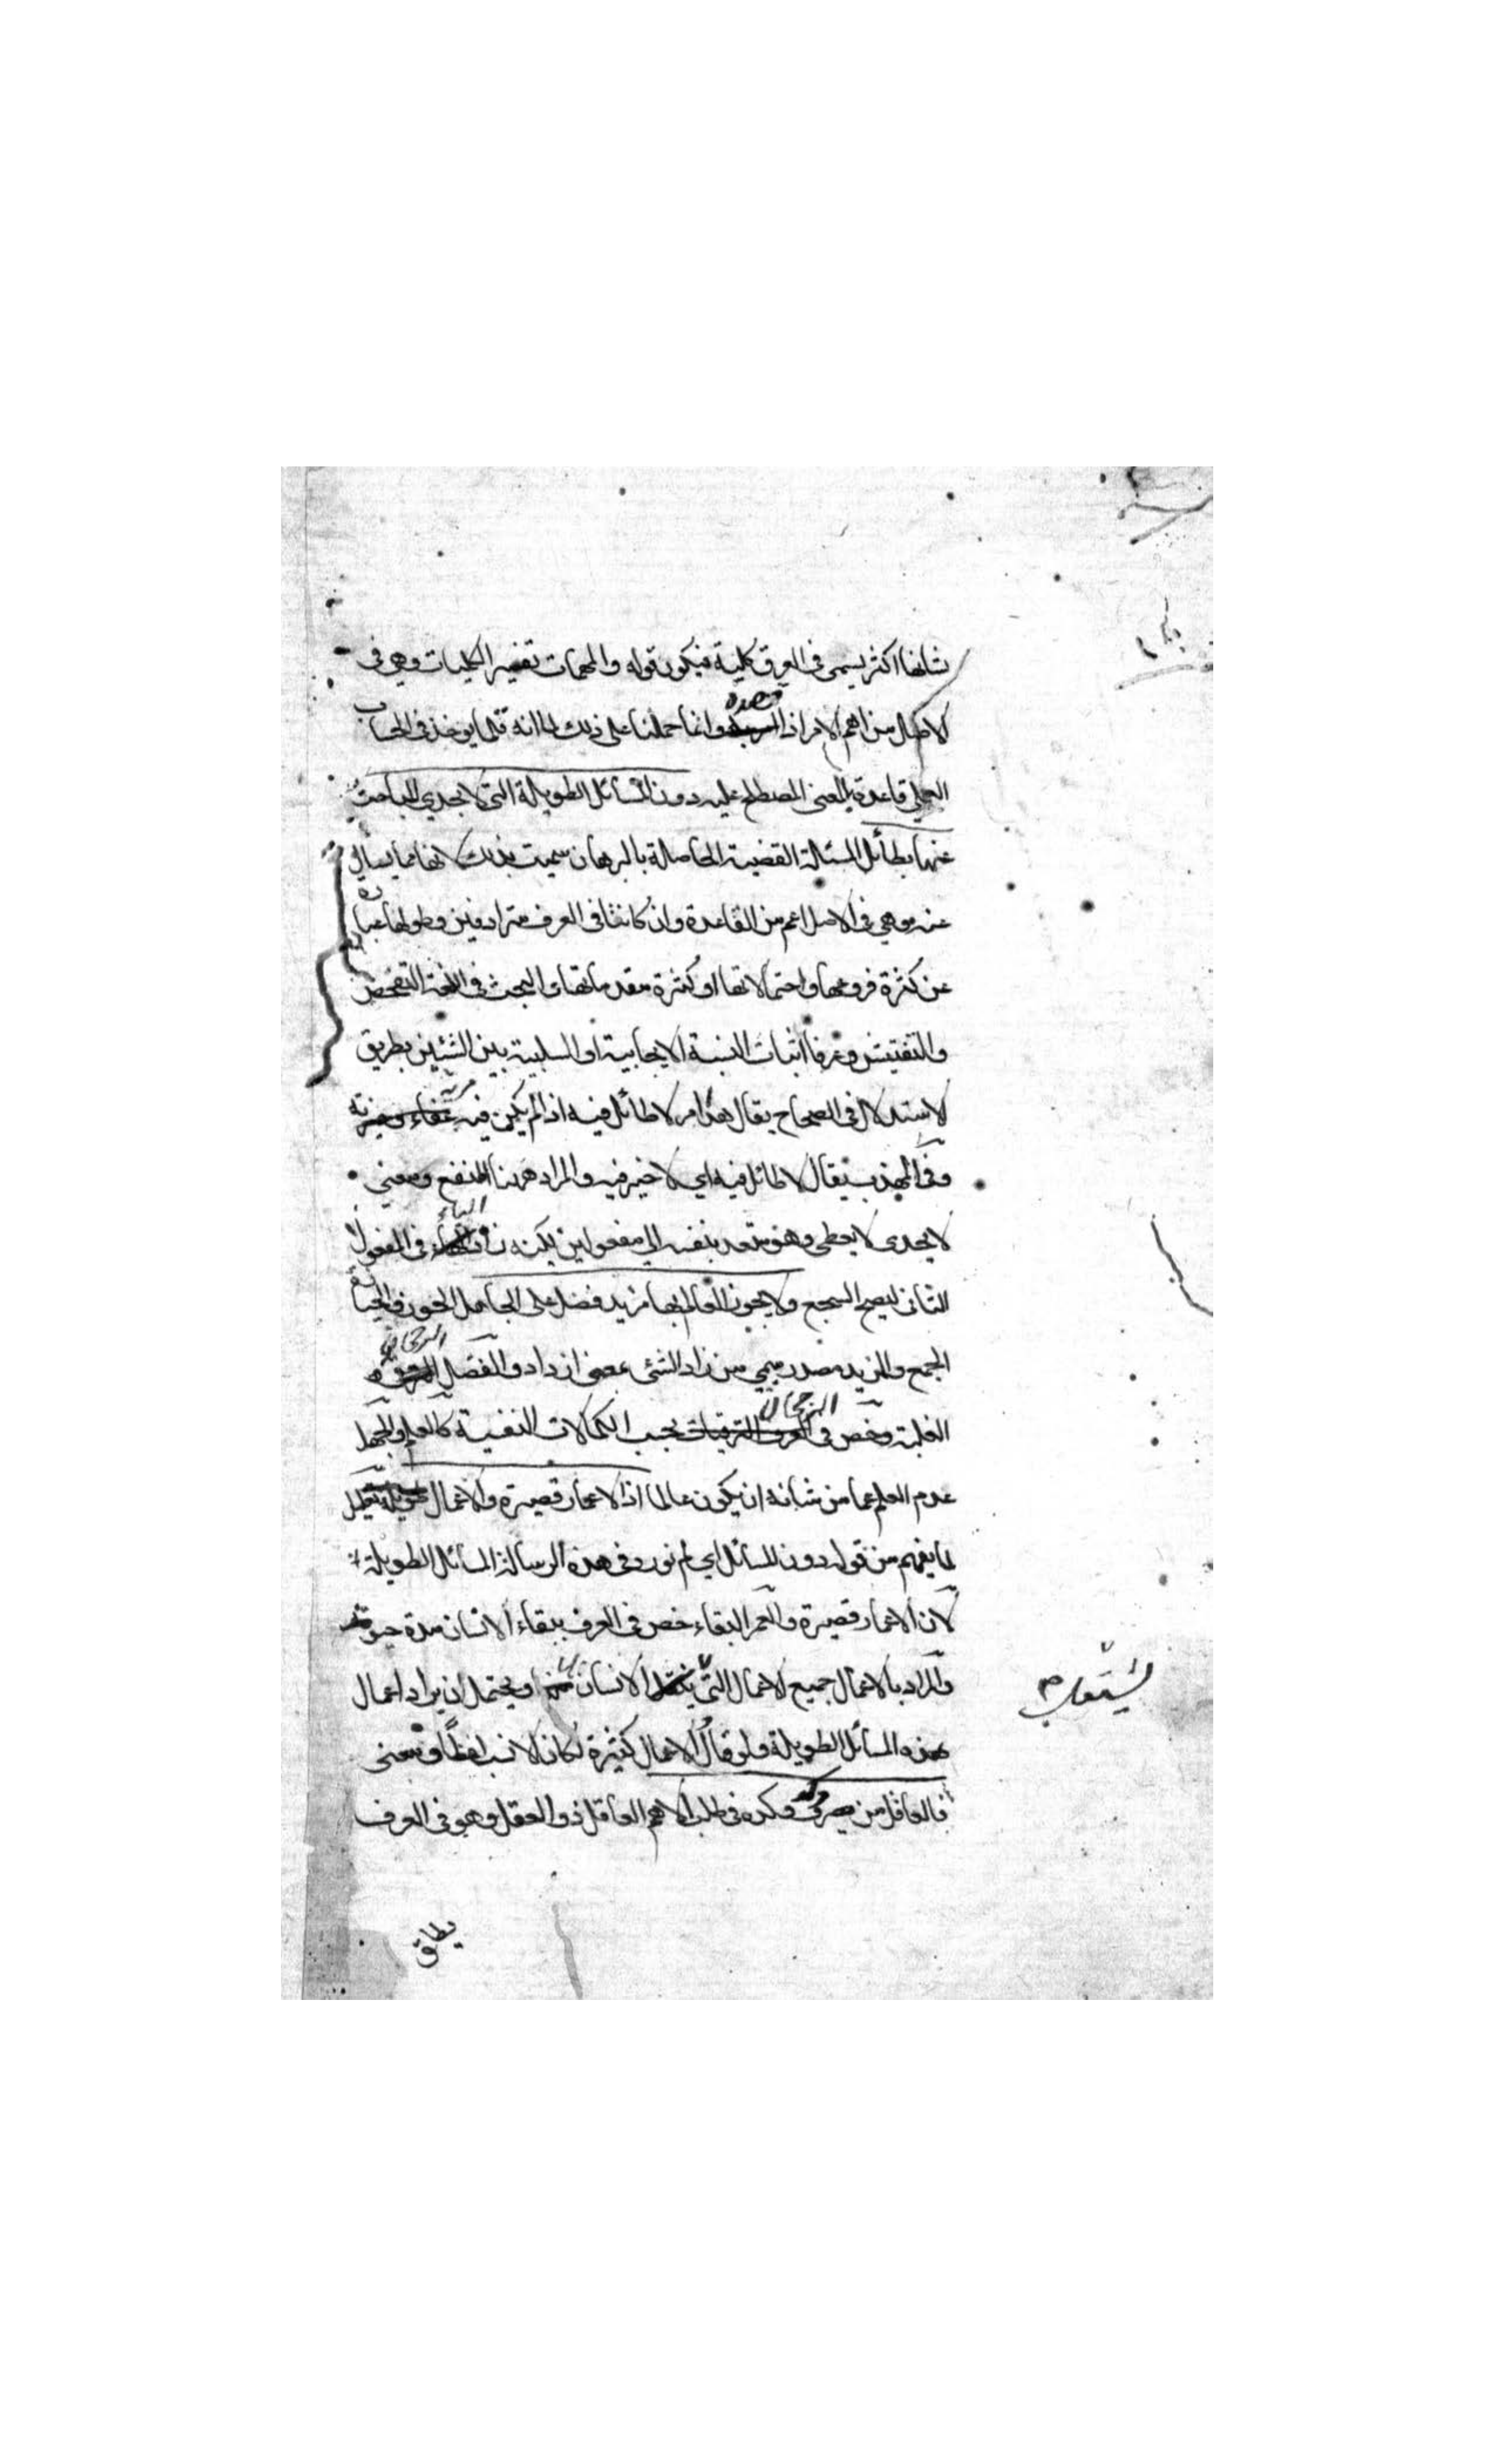 شانها اكثر يسمى فى العرف كلية فيكون قوله والمهمات تفسير الكليات وهى فى
الاصل من اهم الامر اذا قصده وانما حملنا على ذلك لما انه قلما يوخذ فى الحساب
العملى قاعدة بالمعنى المصطلح عليه دون المسائل الطويلة التى لا يجدى الباحث
عنها بطائل المسئلة القضية الحاصلة بالبرهان سميت بذلك لانها مما يسأل
عنه وهى فى الاصل اعم من القاعدة وان كانتا فى العرف مترادفين وطولها عبارة
عن كثرة فروعها واحتمالاتها او كثرة مقدماتها والبحث فى اللغة التفحص
والتفتيش وعرفا اثبات النسبة الايجابية او السلبية بين الشيئين بطريق
الاستدلال فى الصحاح يقال هذا امر لا طائل فيه اذا لم يكن فيه غناء ومزية
وفى المهذب يقال لا طائل فيه اى لا خير فيه والمراد ههنا المنفع ومعنى
لا يجدى لا يعطى وهو متعد بنفسه الى مفعولين لكنه زاد الباء فى المفعول
الثانى ليصح السجع ولا يحوز العالم بها مزيد فضل على الجاهل الحوز والحيازة
الجمع والمزيد مصدر ميمى من زاد الشئ بمعنى ازداد والفضل الرجحان
الغلبة وخص فى الرجحان بحسب الكمالات النفسية كالعلم والجهل
عدم العلم عما من شانه ان يكون عالما اذ الاعمار قصيرة والاعمال طويلة تعليل
لما يفهم من قوله دون المسائل اى لم نورد فى هذه الرسالة المسائل الطويلة
لان الاعمار قصيرة والعمر البقاء خص فى العرف ببقاء الانسان مدة حيوته
والمراد بالاعمال جميع الاعمال التى الانسان ويحتمل ان يراد اعمال
هذه المسائل الطويلة ولو قال الاعمال كثيرة لكان الانسب لفظًا ومعنى
فالعاقل من يصرف وكده فى طلب الاهم العاقل ذو العقل وهو فى العرف
يطلق